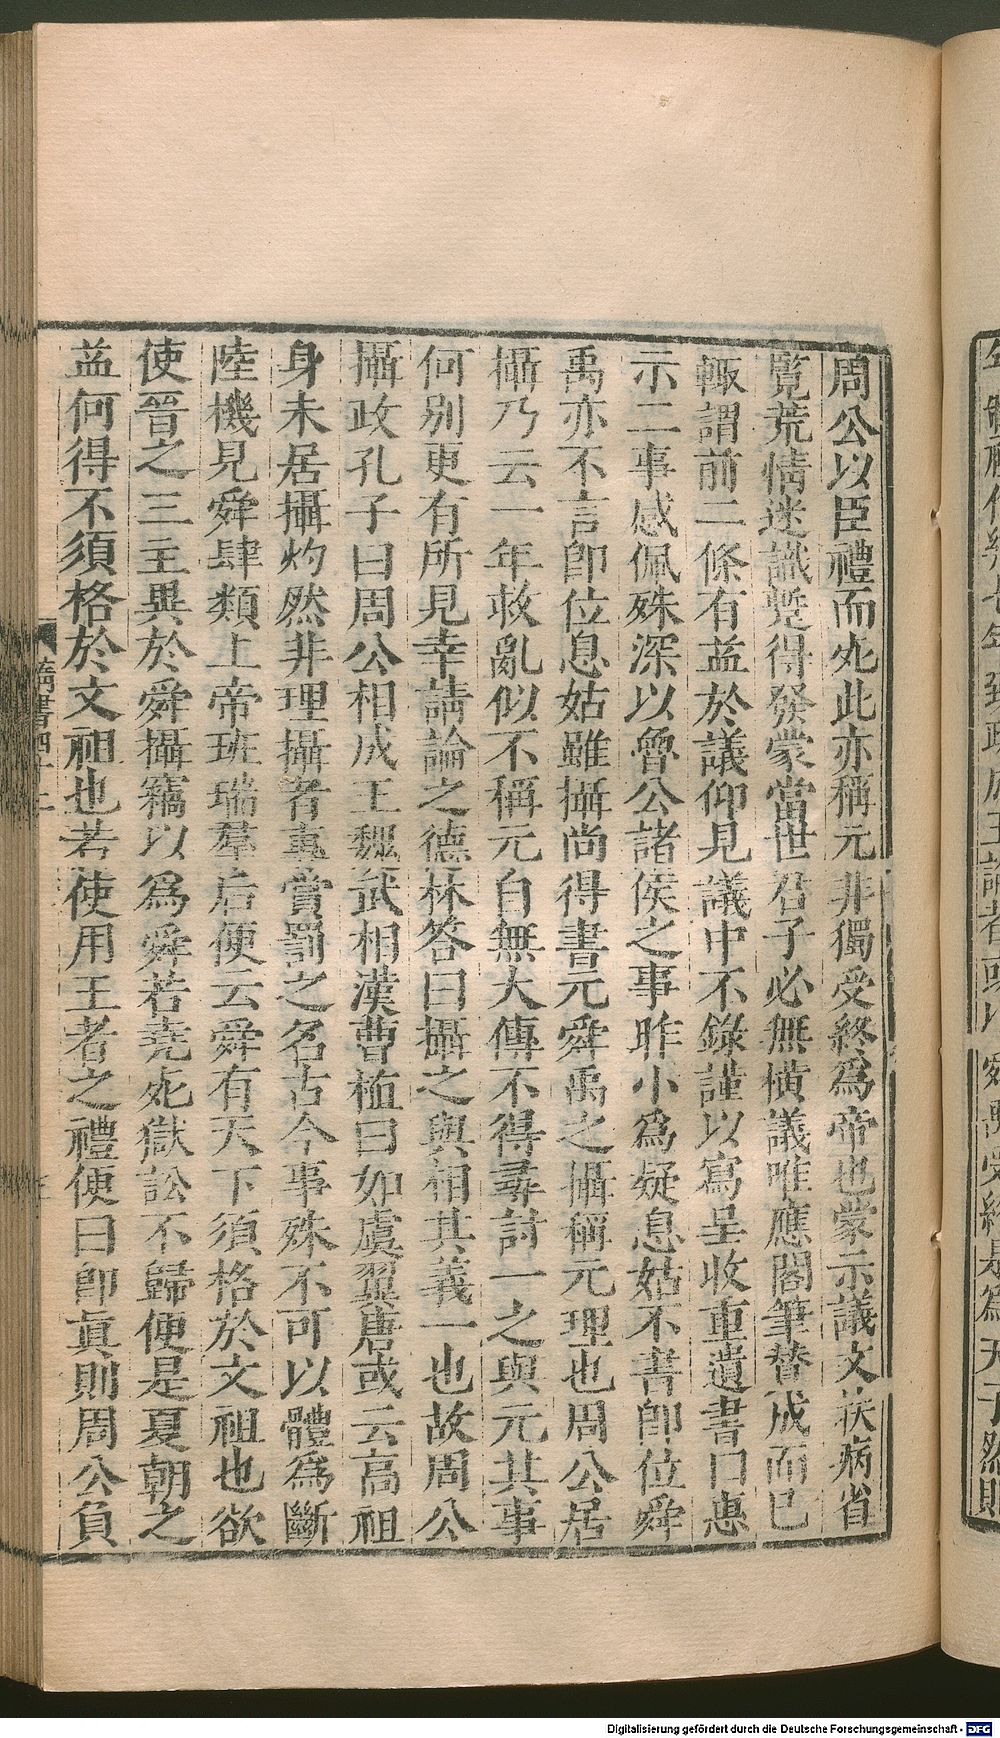 周公以臣禮而𣦸此亦稱元非獨受終爲帝也蒙示議文扶病省
覽荒情迷識蹔得發蒙當世君子必無橫議唯應閣筆贊成而巳
輒謂前二條有益於議仰見議中不錄謹以寫呈收重遺書曰惠
示二事感佩殊深以魯公諸侯之事昨小爲疑息姑不書卽位舜
禹亦不言卽位息姑雖攝尚得書元舜禹之攝稱元理也周公居
攝乃云一年救亂似不稱元自無大傳不得尋討一之與元其事
何别更有所見幸請論之德林答曰攝之與相其義一也故周公
攝政孔子曰周公相成王魏武相漢曹植曰如虞翼唐或云高祖
身未居攝灼然非理攝者專賞罰之名古今事殊不可以體爲斷
陸機見舜肆類上帝班瑞羣后便云舜有天下須格於文祖也欲
使晉之三主異於舜攝竊以爲舜若堯𣦸獄訟不歸便是夏朝之
益何得不須格於文祖也若使用王者之禮便曰卽眞則周公負
隋書四十二